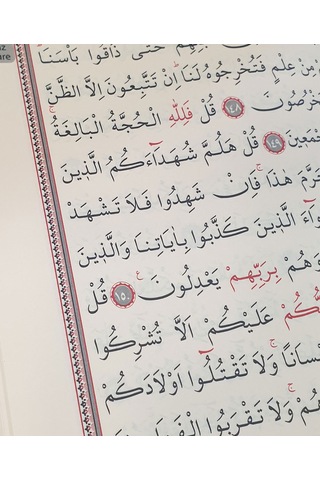 حَتّٰى ذَاقُوا بَأْسَنَا
مِنْ عِلْمٍ فَتُخْرِجُوهُ لَنَا اِنْ تَتَّبِعُونَ اِلَّا الظَّنَّ
تَخْرُصُونَ ﴿١٤٨﴾ قُلْ فَلِلّٰهِ الْحُجَّةُ الْبَالِغَةُ
ـجْمَعٖينَ ﴿١٤٩﴾ قُلْ هَلُمَّ شُهَدَٓاءَكُمُ الَّذٖينَ
حَرَّمَ هٰذَاۚ فَاِنْ شَهِدُوا فَلَا تَشْهَدْ
ـوَٓاءَ الَّذٖينَ كَذَّبُوا بِاٰيَاتِنَا وَالَّذٖينَ
وَهُمْ بِرَبِّهِمْ يَعْدِلُونَ ﴿١٥٠﴾ قُلْ
ـكُمْ عَلَيْكُمْ اَلَّا تُشْرِكُوا
ـسَانًاۚ وَلَا تَقْتُلُٓوا اَوْلَادَكُمْ
ـهُمْۚ وَلَا تَقْرَبُوا